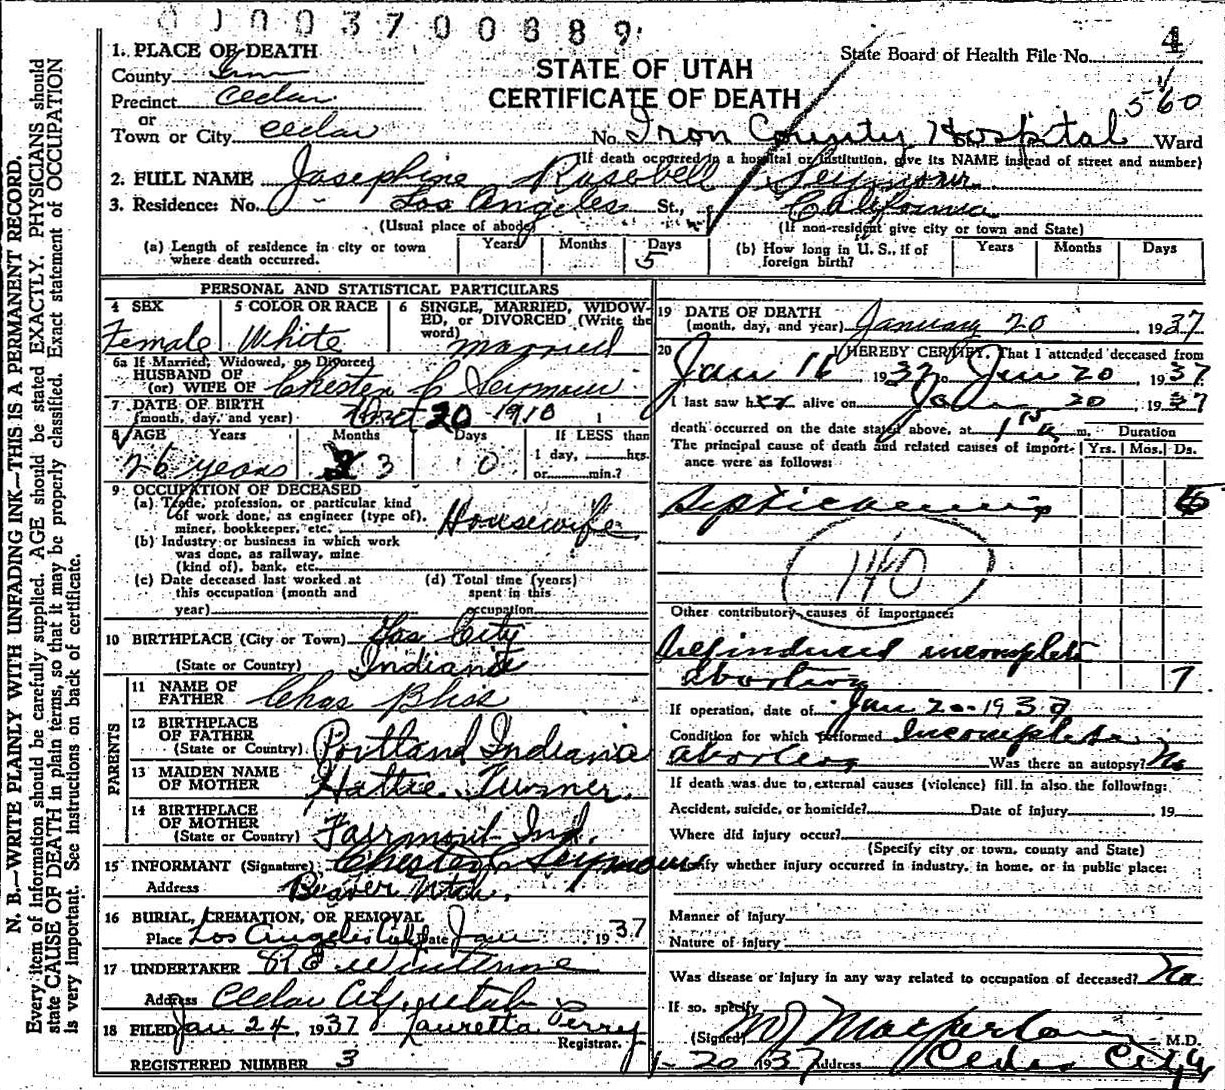 00003700889
1. PLACE OF DEATH
County Iron
Precinct Cedar
or
Town or City Cedar
STATE OF UTAH
CERTIFICATE OF DEATH
State Board of Health File No. 4
560
No. Iron County Hospital Ward
(If death occurred in a hospital or institution, give its NAME instead of street and number)
2. FULL NAME Josephine Rosebell Seymour
3. Residence: No. Los Angeles St., California
(Usual place of abode) (If non-resident give city or town and State)
(a) Length of residence in city or town where death occurred. Years Months Days 5
(b) How long in U. S., if of foreign birth? Years Months Days
PERSONAL AND STATISTICAL PARTICULARS
4 SEX Female
5 COLOR OR RACE White
6 SINGLE, MARRIED, WIDOWED, or DIVORCED (Write the word) married
6a If Married, Widowed, or Divorced
HUSBAND OF
(or) WIFE OF Chester C Seymour
7 DATE OF BIRTH
(month, day, and year) Oct 20 1910
8 AGE Years Months Days If LESS than
26 years 3 0 1 day, hrs.
or min.?
9 OCCUPATION OF DECEASED
(a) Trade, profession, or particular kind
of work done, as engineer (type of), Housewife
miner, bookkeeper, etc.
(b) Industry or business in which work
was done, as railway, mine
(kind of), bank, etc.
(c) Date deceased last worked at
this occupation (month and
year)
(d) Total time (years)
spent in this
occupation
10 BIRTHPLACE (City or Town) Gas City
(State or Country) Indiana
PARENTS
11 NAME OF
FATHER Chas Bliss
12 BIRTHPLACE
OF FATHER
(State or Country) Portland Indiana
13 MAIDEN NAME
OF MOTHER Hattie Turner
14 BIRTHPLACE
OF MOTHER
(State or Country) Fairmount Ind.
15 INFORMANT (Signature) Chester C Seymour
Address Beaver Utah.
16 BURIAL, CREMATION, OR REMOVAL
Place Los Angeles Calif Date Jan 1937
17 UNDERTAKER
Address Cedar City, utah
18 FILED Jan 24, 1937 Lauretta Perry
Registrar.
REGISTERED NUMBER 3
19 DATE OF DEATH
(month, day, and year) January 20 1937
20 I HEREBY CERTIFY, That I attended deceased from
Jan 16 1937 to Jan 20 1937
I last saw her alive on Jan 20 1937
death occurred on the date stated above, at m. Duration
The principal cause of death and related causes of importance were as follows: Yrs. Mos. Ds.
Septicemia 5
140
Other contributory causes of importance:
Self induced incomplete
abortion 7
If operation, date of Jan 20-1937
Condition for which performed Incomplete
abortion Was there an autopsy? No
If death was due to external causes (violence) fill in also the following:
Accident, suicide, or homicide? Date of injury , 19
Where did injury occur?
(Specify city or town, county and State)
Specify whether injury occurred in industry, in home, or in public place:
Manner of injury
Nature of injury
Was disease or injury in any way related to occupation of deceased? No
If so, specify
(Signed) M.D.
1-20 1937 Address Cedar City
N. B.—WRITE PLAINLY WITH UNFADING INK—THIS IS A PERMANENT RECORD.
Every item of information should be carefully supplied. AGE should be stated EXACTLY. PHYSICIANS should
state CAUSE OF DEATH in plain terms, so that it may be properly classified. Exact statement of OCCUPATION
is very important. See instructions on back of certificate.